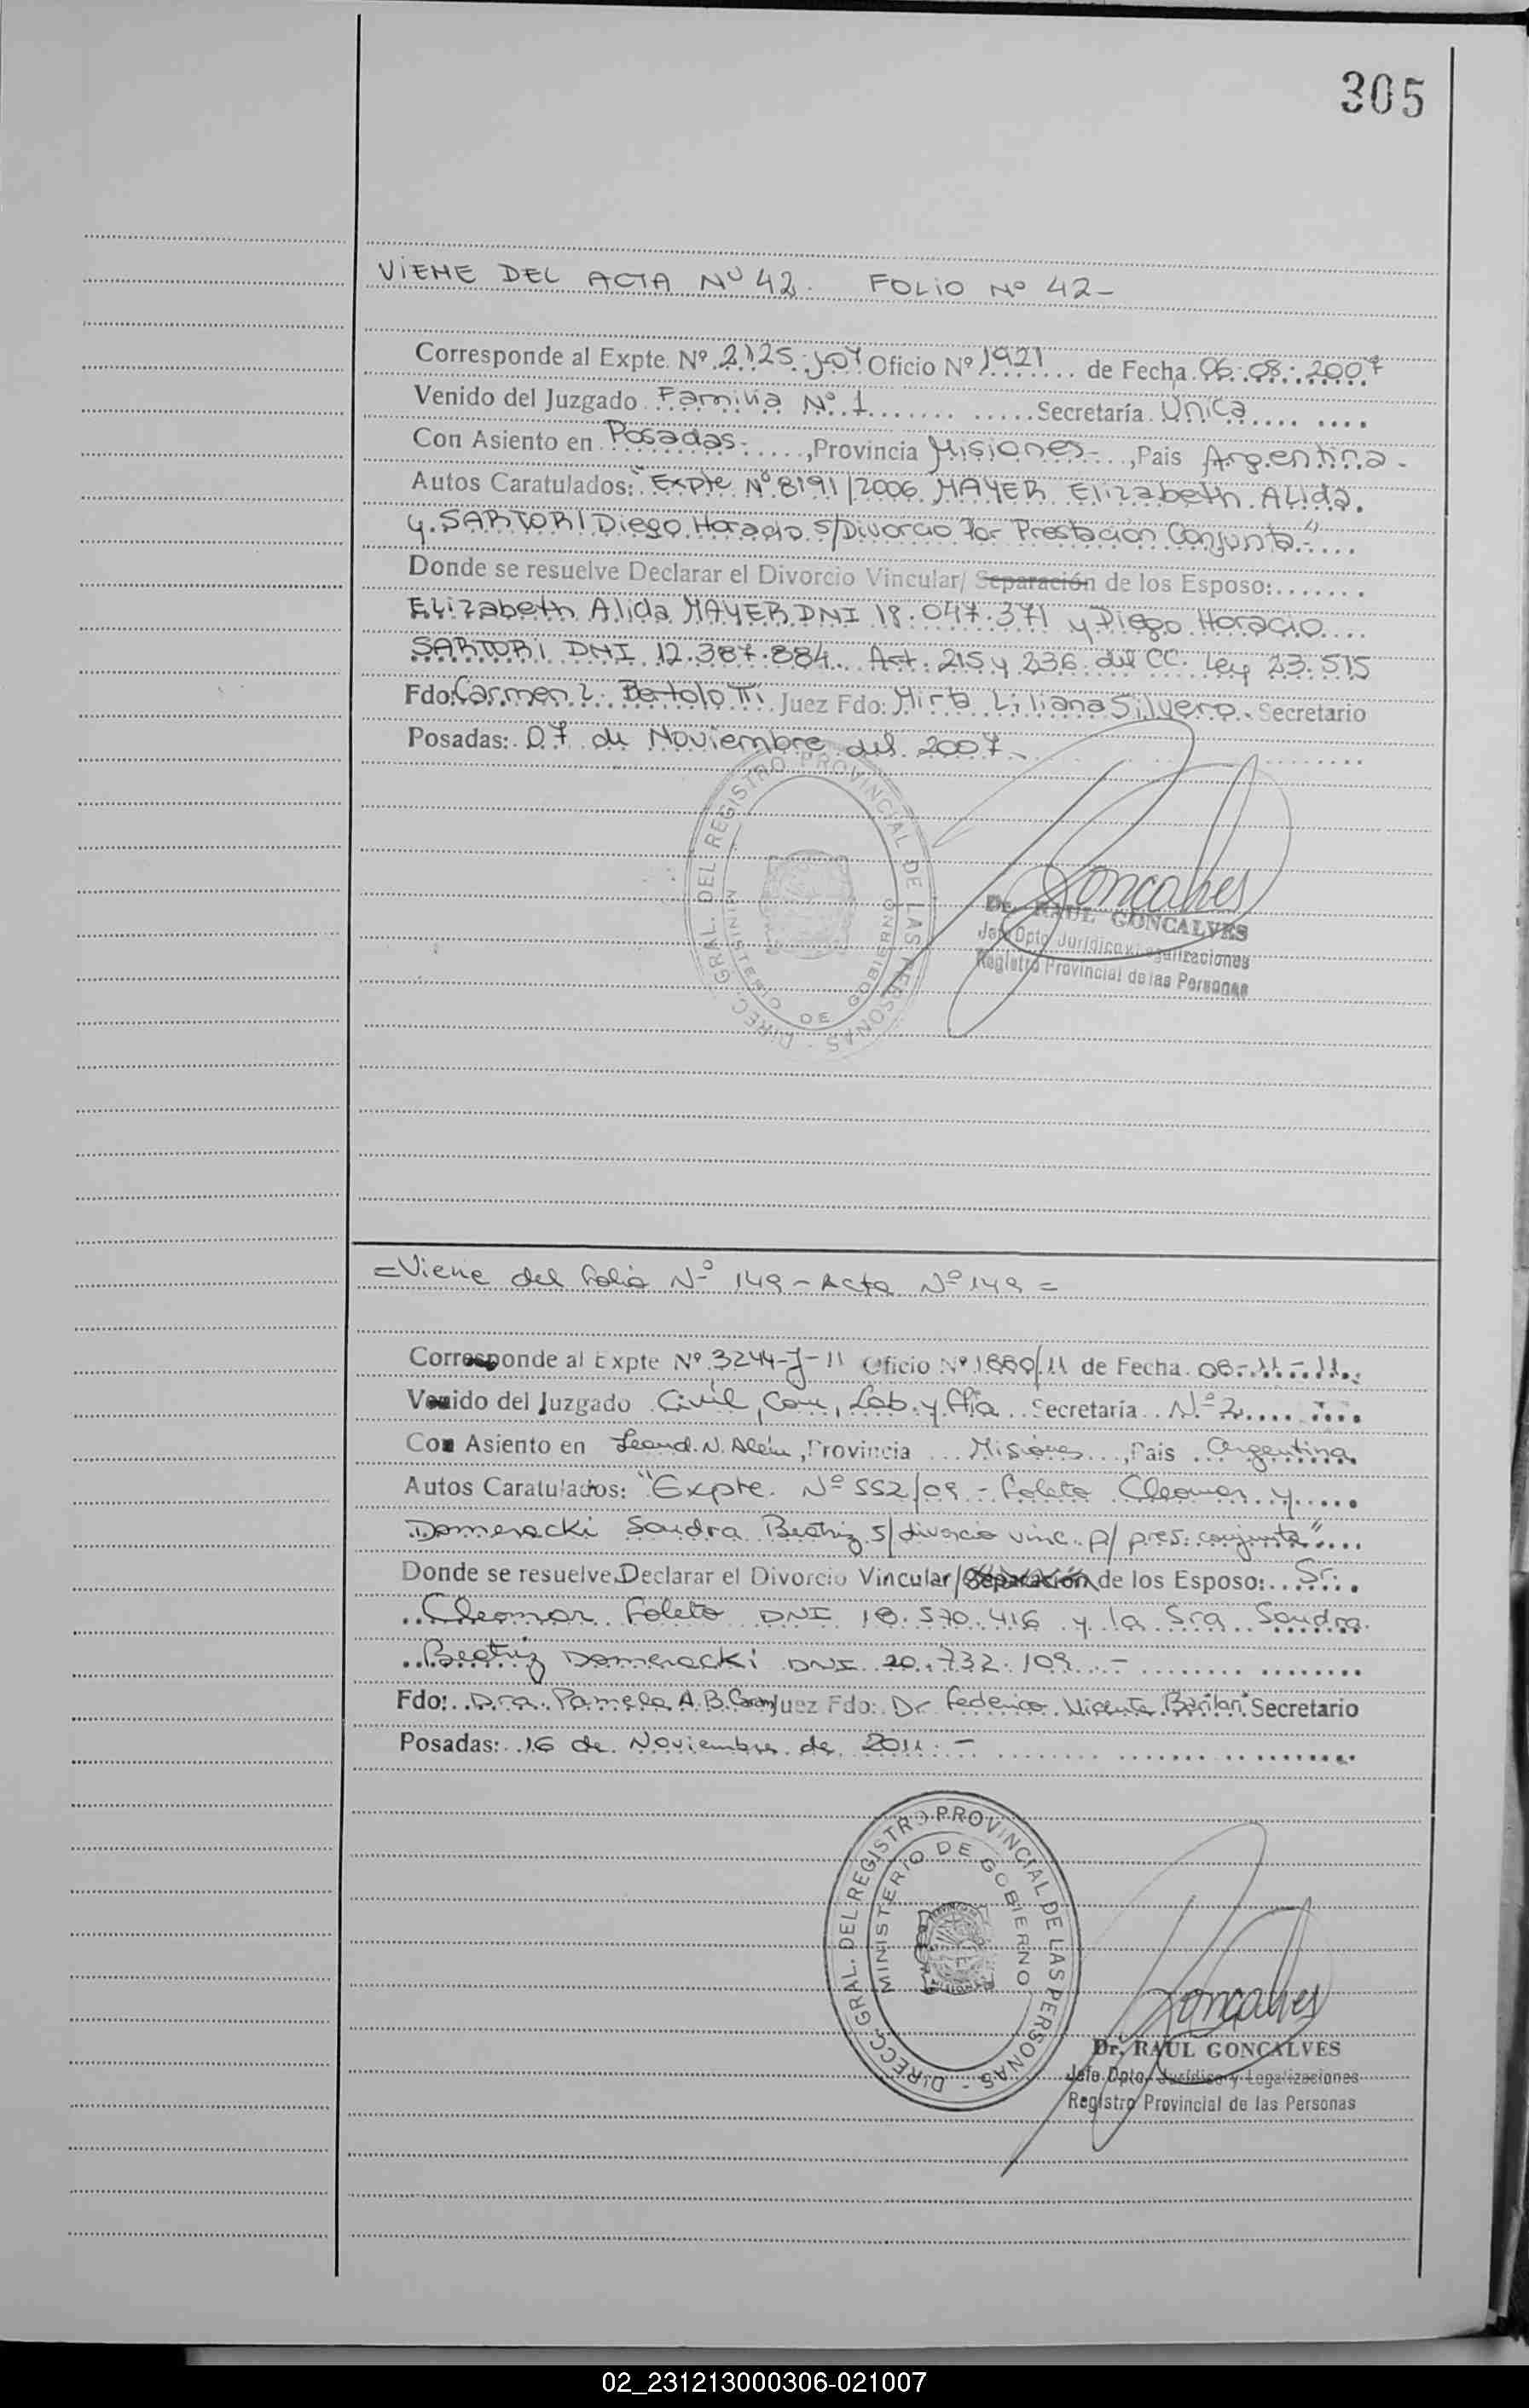 305
VIENE DEL ACTA Nº 42. FOLIO Nº 42-
Corresponde al Expte. Nº 2125. Oficio Nº 1921 de Fecha 06.08.2007
Venido del Juzgado Familia Nº 1 Secretaría Unica
Con Asiento en Posadas, Provincia Misiones, Pais Argentina.
Autos Caratulados: "Expte Nº 8191/2006 MAYER Elizabeth Alida
y SARTORI Diego Horacio s/Divorcio Por Prestación Conjunta"
Donde se resuelve Declarar el Divorcio Vincular/ Separación de los Esposo:
Elizabeth Alida MAYER DNI 18.047.371 y Diego Horacio
SARTORI DNI 12.387.884. Art. 215 y 236 del CC. Ley 23.515
Fdo: Carmen L. Bertolotti Juez Fdo: Mirta Liliana Silvero. Secretario
Posadas: 07 de Noviembre del 2007
DIRECC. GRAL. DEL REGISTRO PROVINCIAL DE LAS PERSONAS -
MINISTERIO DE GOBIERNO
Goncalves
Dr. RAUL GONCALVES
Jefe Dpto Jurídico y Legalizaciones
Registro Provincial de las Personas
=Viene del folio Nº 149 - Acta Nº 149 =
Corresponde al Expte Nº 3244-J-11 Oficio Nº 1880/11 de Fecha 08-11-11
Venido del Juzgado Civil, Com, Lab. y Flia Secretaría Nº 2
Con Asiento en Leand. N. Além, Provincia Misiones, Pais Argentina
Autos Caratulados: "Expte. Nº 552/09 - Foleto Cleomar y
Domeracki Sandra Beatriz s/divorcio vinc. p/ pres. conjunta"
Donde se resuelve Declarar el Divorcio Vincular/Separación de los Esposo: Sr.
Cleomar Foleto DNI 18.570.416 y la Sra Sandra
Beatriz Domeracki DNI 20.732.109 -
Fdo: Dra. Pamela A. B. Juez Fdo: Dr Federico Vicente Barilari Secretario
Posadas: 16 de Noviembre de 2011 -
DIRECC. GRAL. DEL REGISTRO PROVINCIAL DE LAS PERSONAS -
MINISTERIO DE GOBIERNO
Goncalves
Dr. RAUL GONCALVES
Jefe Dpto. Jurídico y Legalizaciones
Registro Provincial de las Personas
02_231213000306-021007